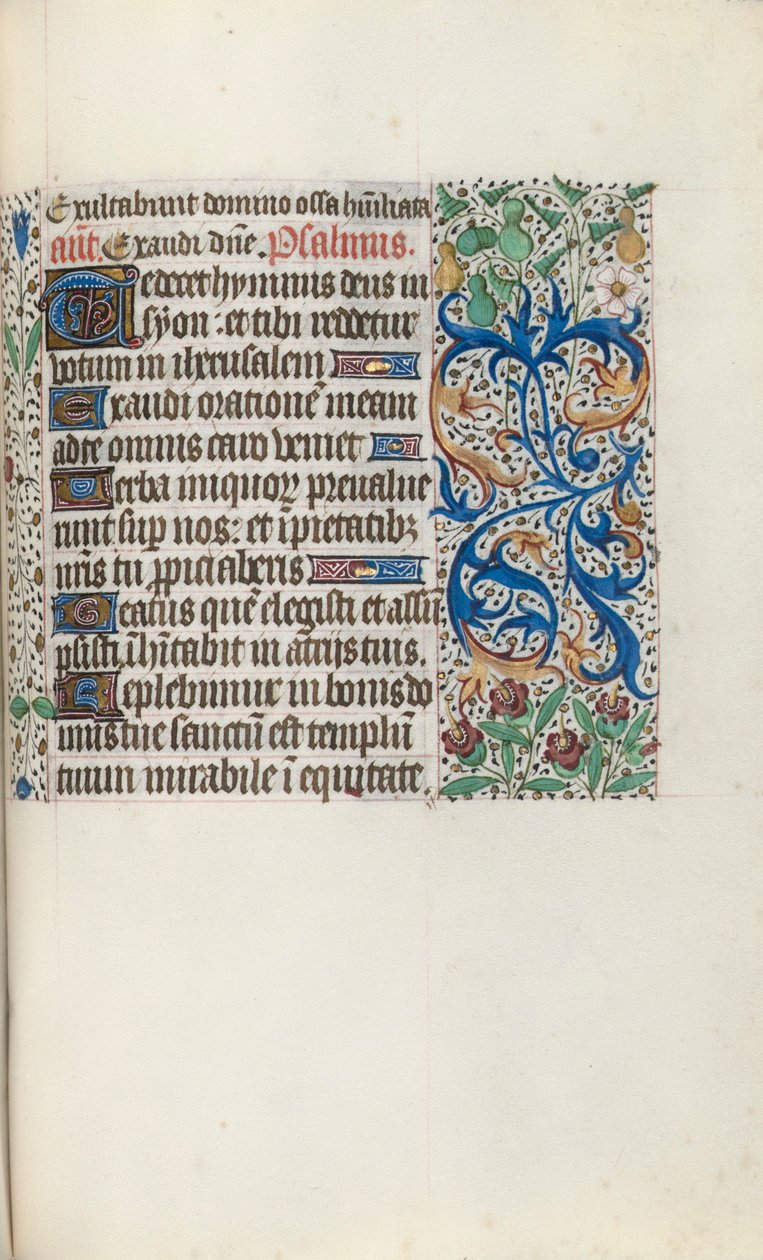 Exultabunt domino ossa hūiliata
añt. Exaudi dñe. Psalmus.
Te decet hymnus deus in
syon : et tibi reddetur
votum in iherusalem
Exaudi orationē meam
ad te omnis caro veniet
Verba iniquoꝝ preualue
runt sup nos : et īpietatibꝫ
nr̄is tu ꝓpiciaberis
Beatus quē elegisti et assū
psisti īhītabit in atrijs tuis.
Replebimur in bonis do
mus tue sanctū est templū
tuum mirabile ī equitate.